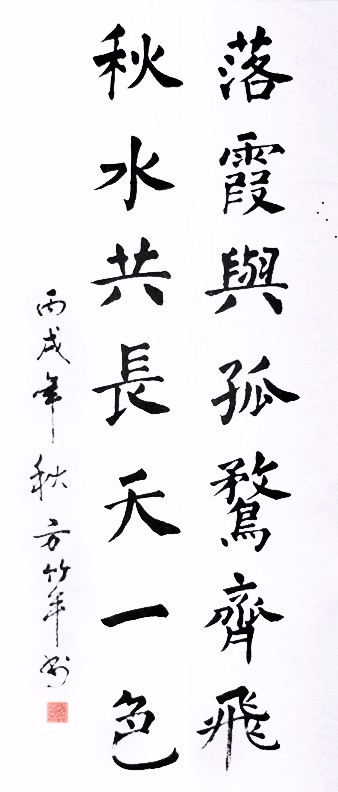 落霞與孤鶩齊飛
秋水共長天一色
丙戌年秋方竹平書